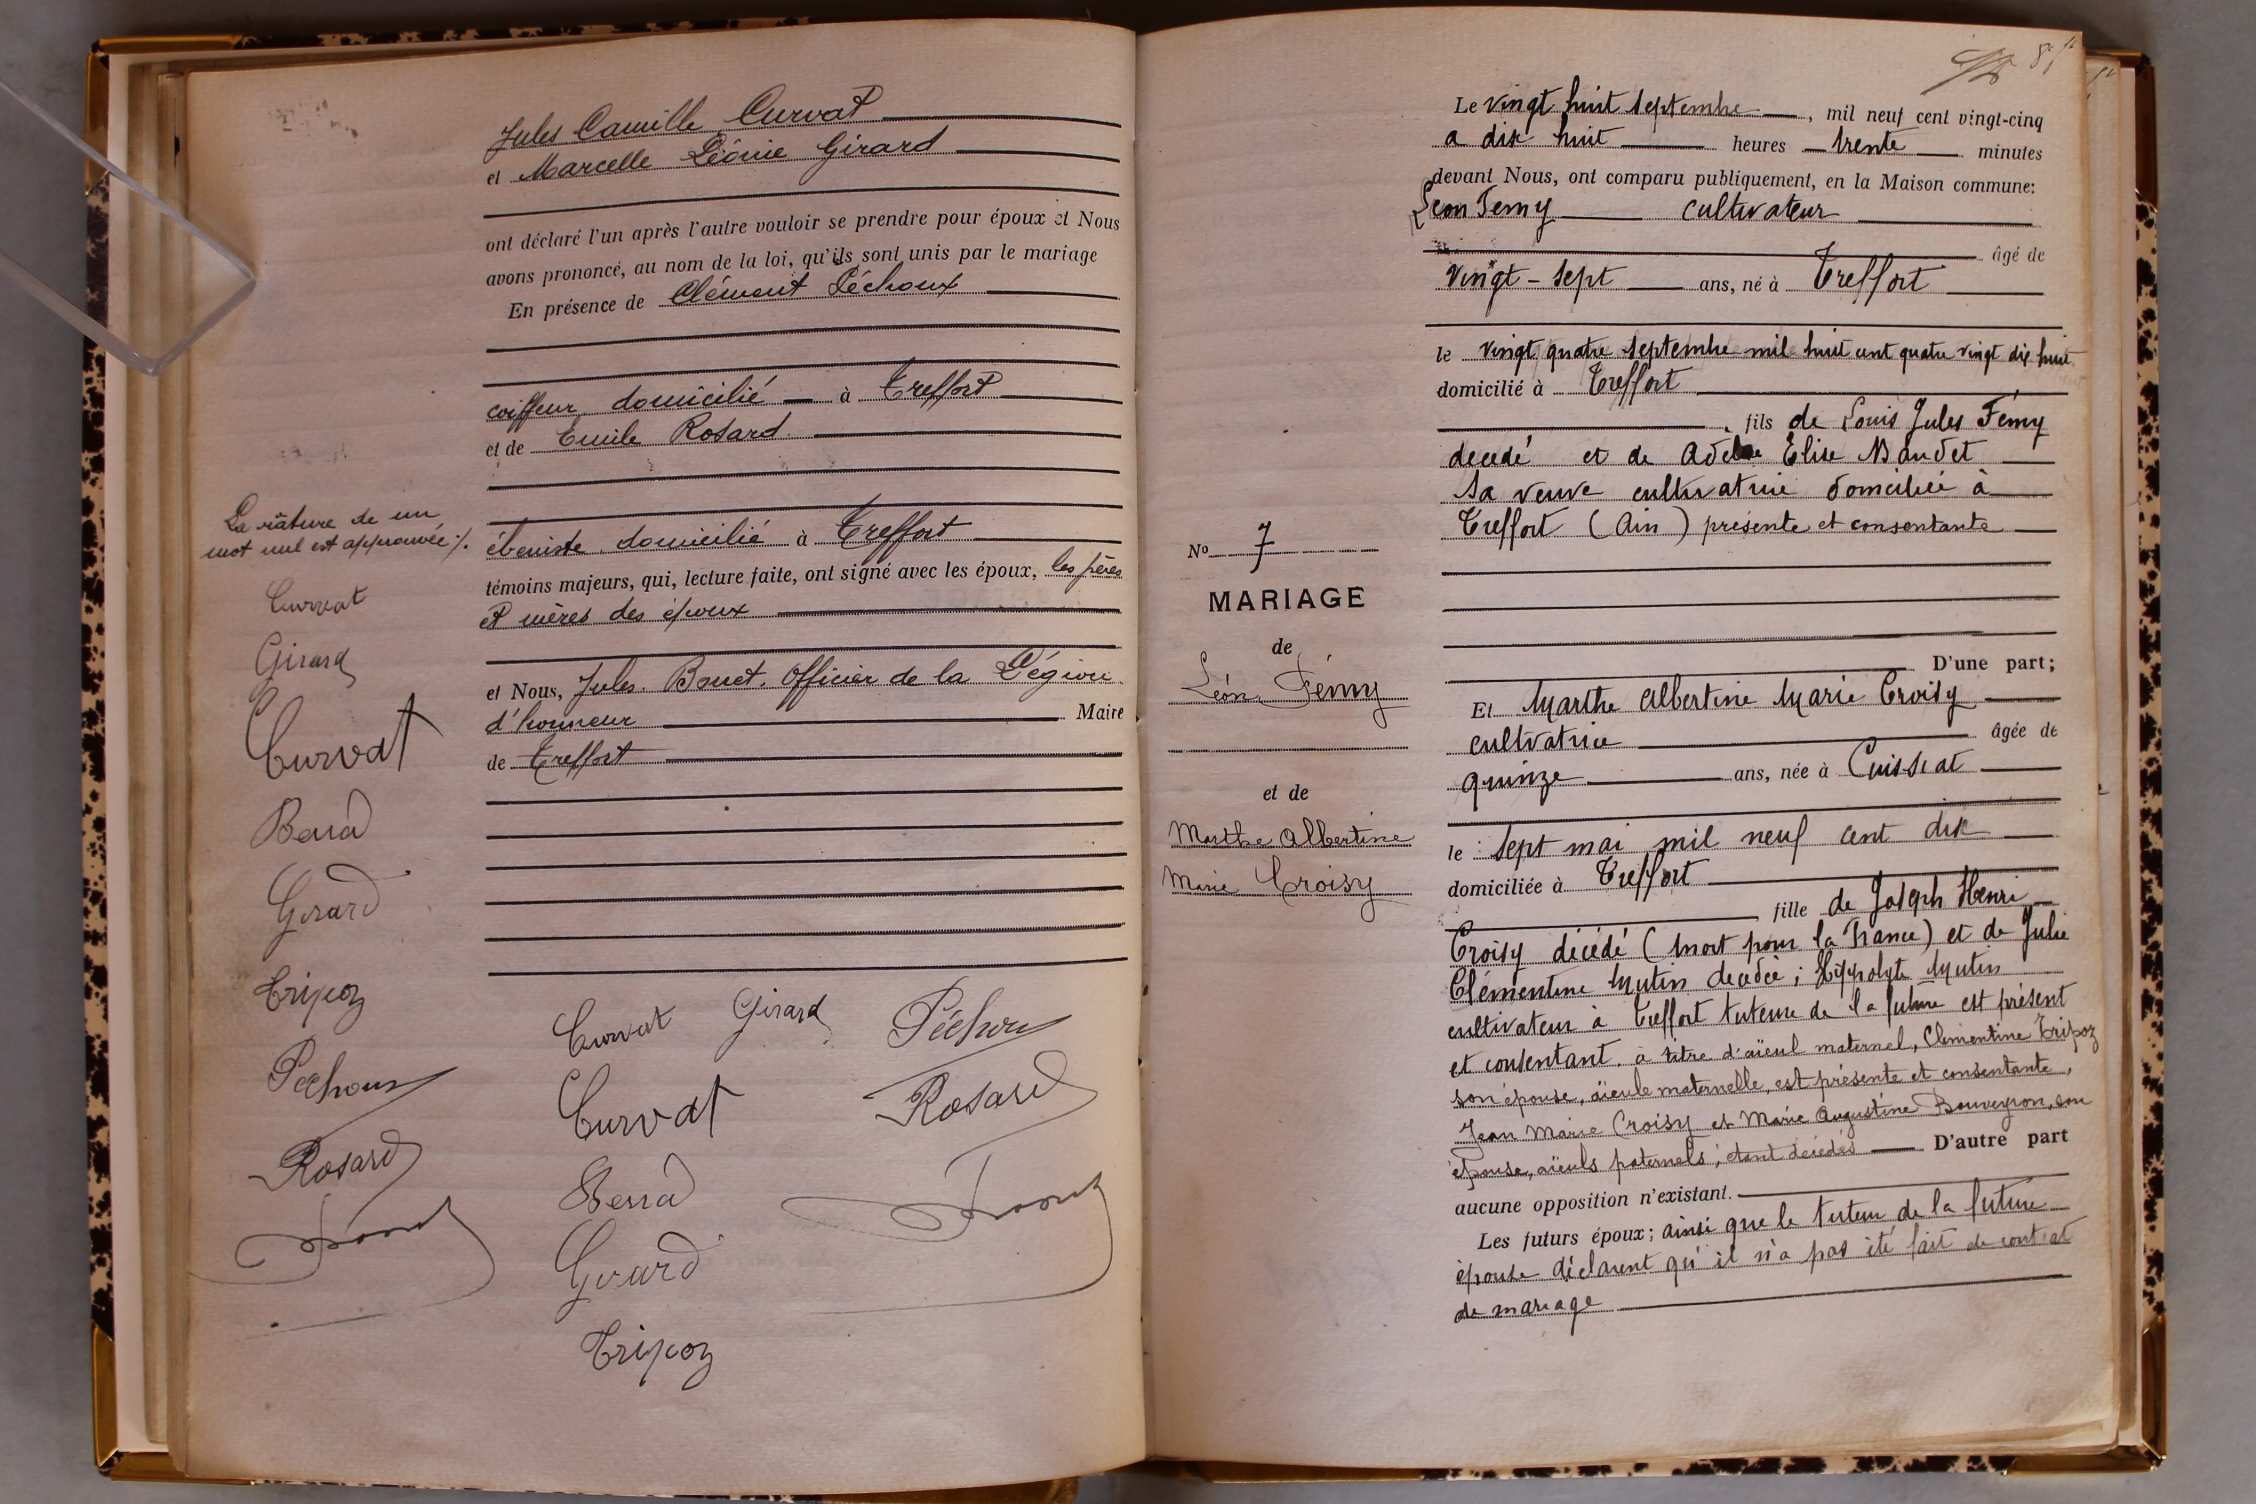 Jules Camille Curvat
et Marcelle Léonie Girard
ont déclaré l'un après l'autre vouloir se prendre pour époux et Nous
avons prononcé, au nom de la loi, qu'ils sont unis par le mariage
En présence de Clément Péchoux
coiffeur domicilié à Treffort
et de Emile Rosard
ébeniste domicilié à Treffort
témoins majeurs, qui, lecture faite, ont signé avec les époux, les pères
et mères des époux
et Nous, Jules Bouet. Officier de la Légion
d'honneur Maire
de Treffort
La râture de un
mot nul est approuvée ./.
Curvat
Girard
Curvat
Girard
Tripoz
Péchoux
Rosard
Curvat Girard Péchoux
Curvat Rosard
Girard
Tripoz
Le vingt huit septembre, mil neuf cent vingt-cinq
a dix huit heures trente minutes
devant Nous, ont comparu publiquement, en la Maison commune:
Léon Femy cultivateur
âgé de
vingt-sept ans, né à Treffort
le vingt quatre septembre mil huit cent quatre vingt dix huit
domicilié à Treffort
, fils de Louis Jules Fémy
decedé et de Elise Baudet
sa veuve cultivatrice domiciliée à
Treffort (Ain) présente et consentante
D'une part;
No 7
MARIAGE
de
Léon Fémy
et de
Marthe Albertine
Marie Croisy
Et Marthe Albertine Marie Croisy
cultivatrice âgée de
quinze ans, née à Cuisiat
le sept mai mil neuf cent dix
domiciliée à Treffort
fille de Joseph Henri
Croisy décédé (mort pour la France) et de Julie
Clémentine Mutin decedée; Hippolyte Mutin
cultivateur à Treffort tuteur de la future est présent
et consentant. à titre d'aïeul maternel, Clémentine Tripoz
son épouse, aïeule maternelle, est présente et consentante,
Jean Marie Croisy et Marie Augustine Bouveyron, son
épouse, aïeuls paternels, étant décédés D'autre part
aucune opposition n'existant.
Les futurs époux; ainsi que le tuteur de la future
épouse déclarent qu'il n'a pas été fait de contrat
de mariage